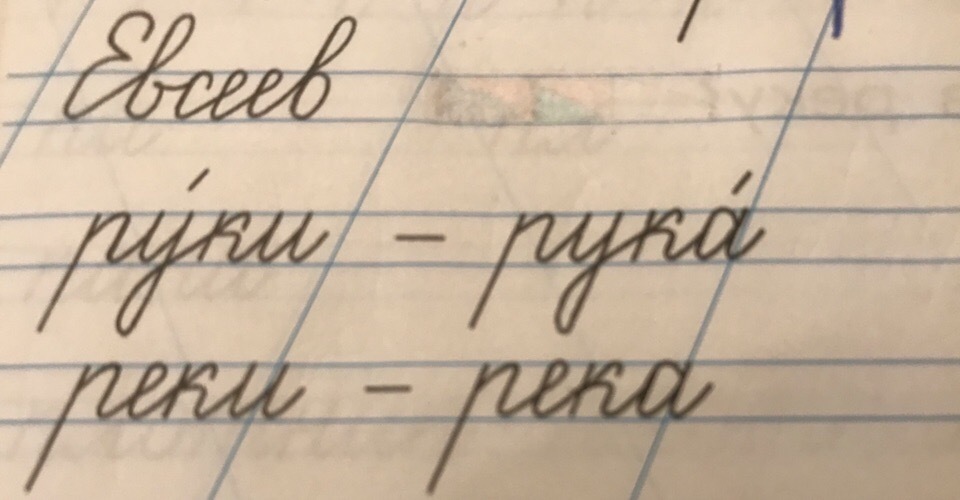 Евсеев
ру́ки – рука́
реки – река